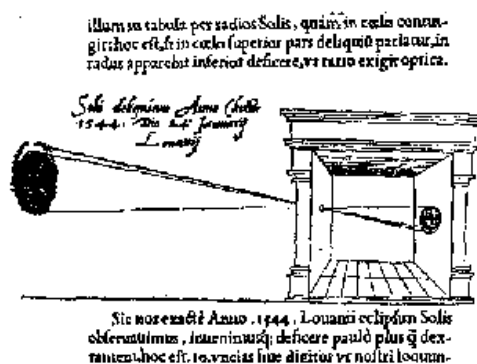 illum in tabula per radios Solis, quàm in cœlo contin-
git: hoc est, si in cœlo superior pars deliquiũ patiatur, in
radiis apparebit inferior deficere, vt ratio exigit optica.
Solis deliquium Anno Christi
1544. Die 24 Januarij
Louanij
Sic nos exactè Anno .1544. Louanii eclipsim Solis
obseruauimus, inuenimusq; deficere paulò plus q̃ dex-
tantem, hoc est, 10. vncias siue digitos vt nostri loquun-